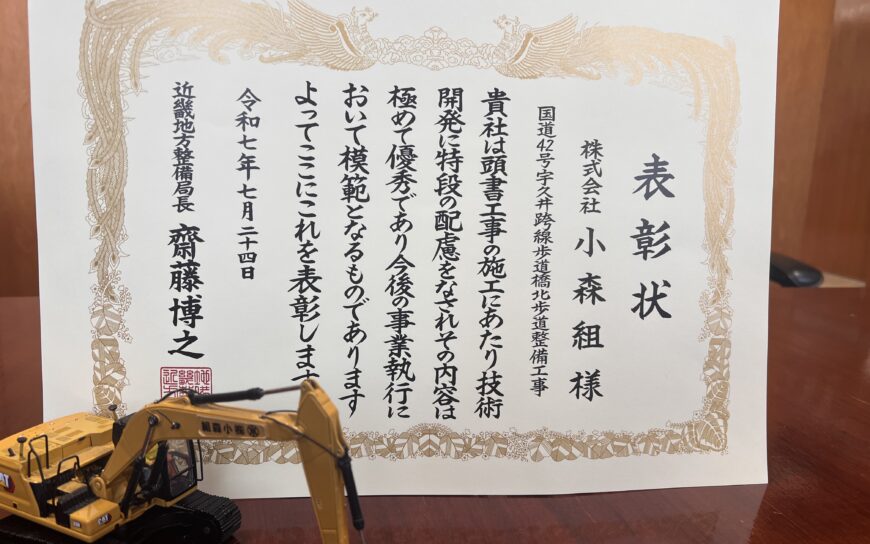 表彰状
株式会社 小森組様
国道42号宇久井跨線歩道橋北歩道整備工事
貴社は頭書工事の施工にあたり技術
開発に特段の配慮をなされその内容は
極めて優秀であり今後の事業執行に
おいて模範となるものであります
よってここにこれを表彰します
令和七年七月二十四日
近畿地方整備局長 齋藤博之
組森小㈱
CAT
CAT